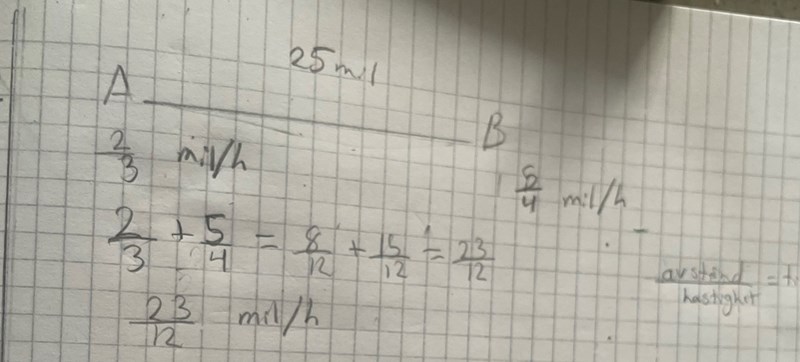 25 mil
A B
2/3 mil/h
5/4 mil/h
2/3 + 5/4 = 8/12 + 15/12 = 23/12
avstånd/hastighet =
23/12 mil/h